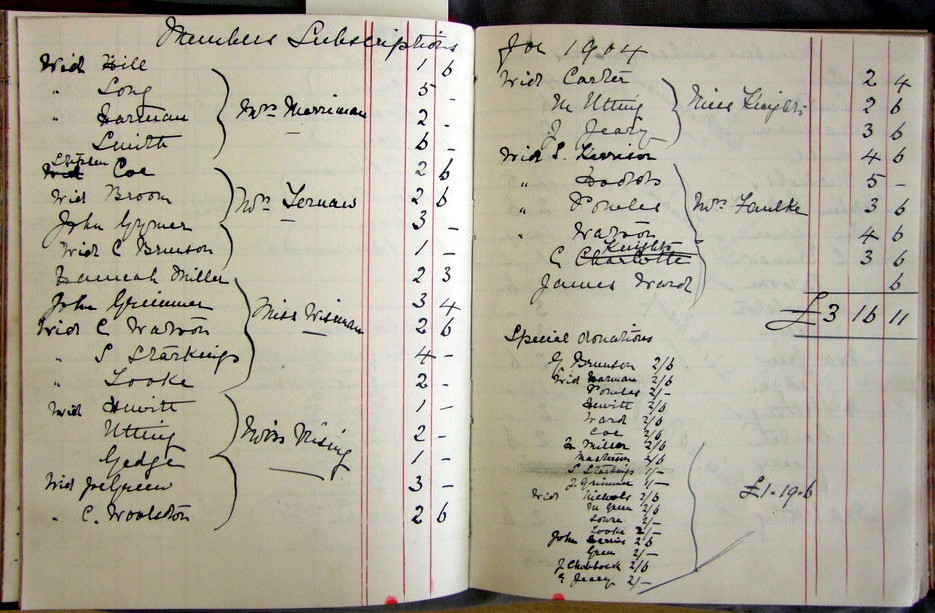 Members Subscriptions
Wid Hill 1 6
" Long 5 -
" Harman Mrs Merriman 2 -
Smith 6 -
Stephen
Wid Coe 2 6
Wid Broom Mrs 2 6
John Gymer 3 -
Wid C Brunson 1 -
Hannah Miller 2 3
John Grimmer 3 4
Wid C Watson Miss Wiseman 2 6
" S Starkings 4 -
" Tooke 2 -
Wid Hewitt 1 -
Utting Miss Rising 2 -
Gedge 1 -
Wid Green 3 -
" C. Woolston 2 6
for 1904
Wid Carter 2 4
M Utting Miss Knights 2 6
J Jeary 3 6
Wid S. Kerrison 4 6
" 5 -
" Powles Mrs Faulke 3 6
" Watson 4 6
Knights
G Charlotte 3 6
James Ward 6
£3 16 11
Special donations
G Brunson 2/6
Wid Harman 2/6
Powles 2/-
Hewitt 2/6
Ward 2/6
Coe 2/6
H Miller 2/6
2/6
S Starkings 1/-
J Grimmer 1/-
Wid Nichols 2/6
M Green 2/6
2/-
Tooke 2/-
John 2/6
Green 2/-
J Chubbock 2/6
G Jeary 2/-
£1-19-6